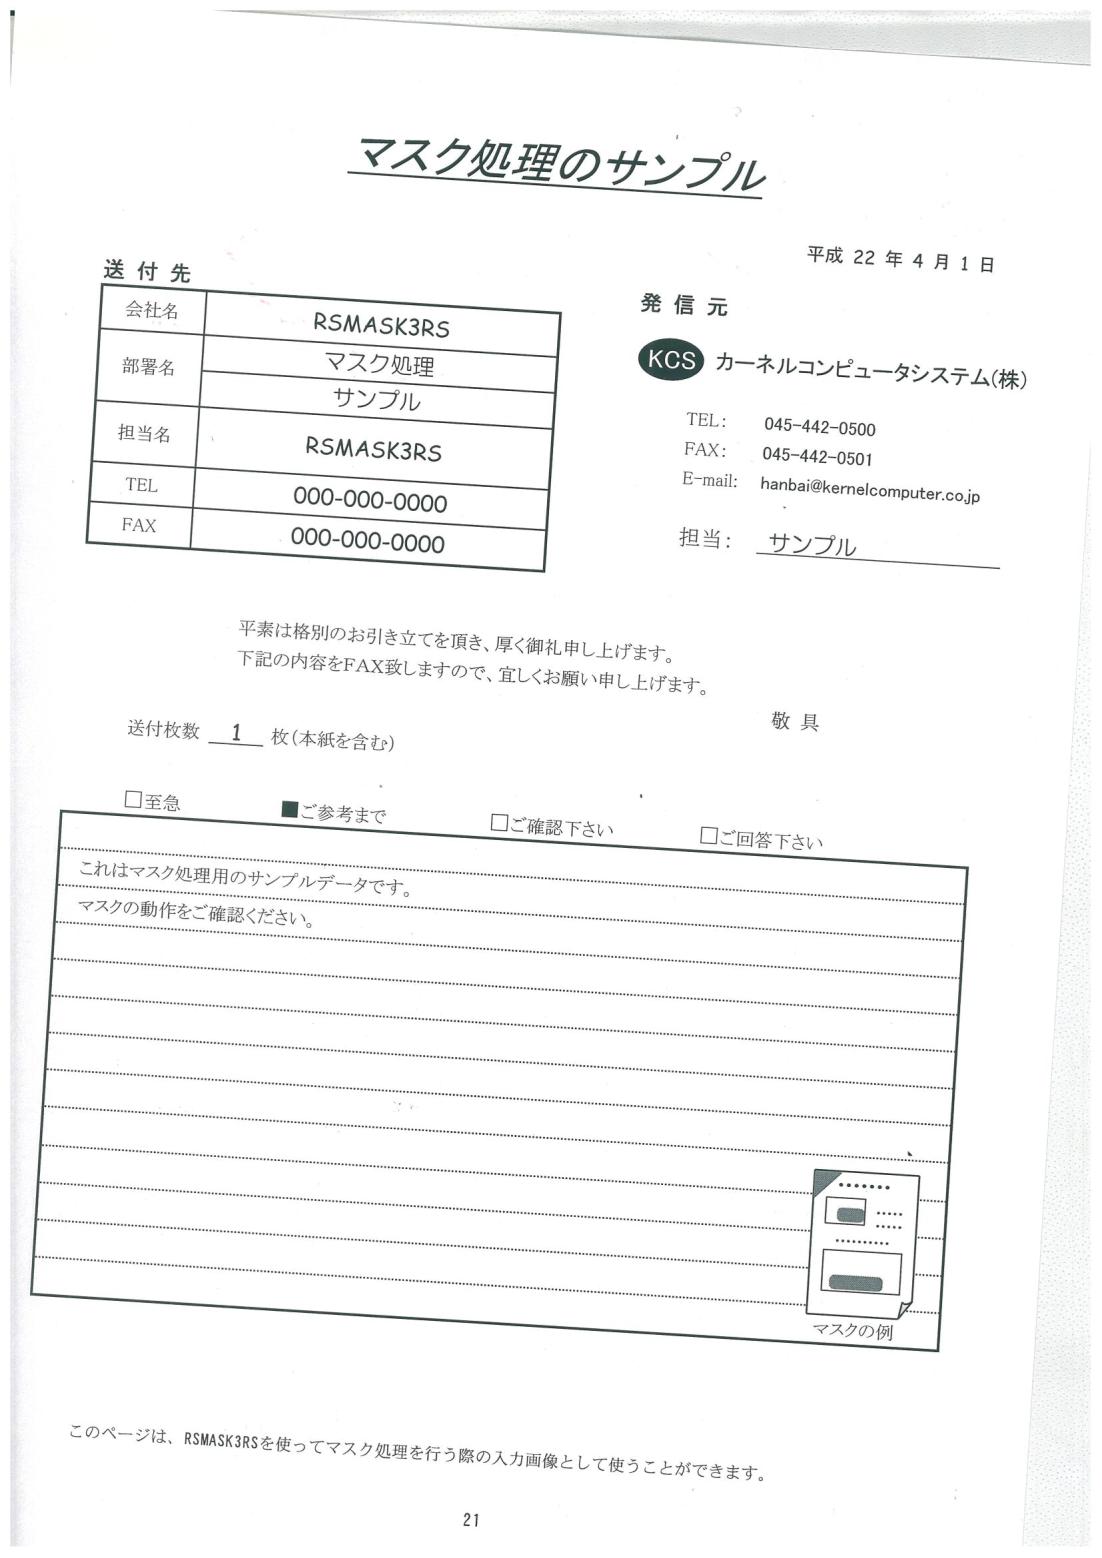 マスク処理のサンプル
平成 22 年 4 月 1 日
送 付 先
会社名 RSMASK3RS
部署名 マスク処理
サンプル
担当名 RSMASK3RS
TEL 000-000-0000
FAX 000-000-0000
発 信 元
KCS カーネルコンピュータシステム(株)
TEL: 045-442-0500
FAX: 045-442-0501
E-mail: hanbai@kernelcomputer.co.jp
担当: サンプル
平素は格別のお引き立てを頂き、厚く御礼申し上げます。
下記の内容をFAX致しますので、宜しくお願い申し上げます。
敬 具
送付枚数 1 枚(本紙を含む)
□至急 ■ご参考まで □ご確認下さい □ご回答下さい
これはマスク処理用のサンプルデータです。
マスクの動作をご確認ください。
マスクの例
このページは、RSMASK3RSを使ってマスク処理を行う際の入力画像として使うことができます。
21